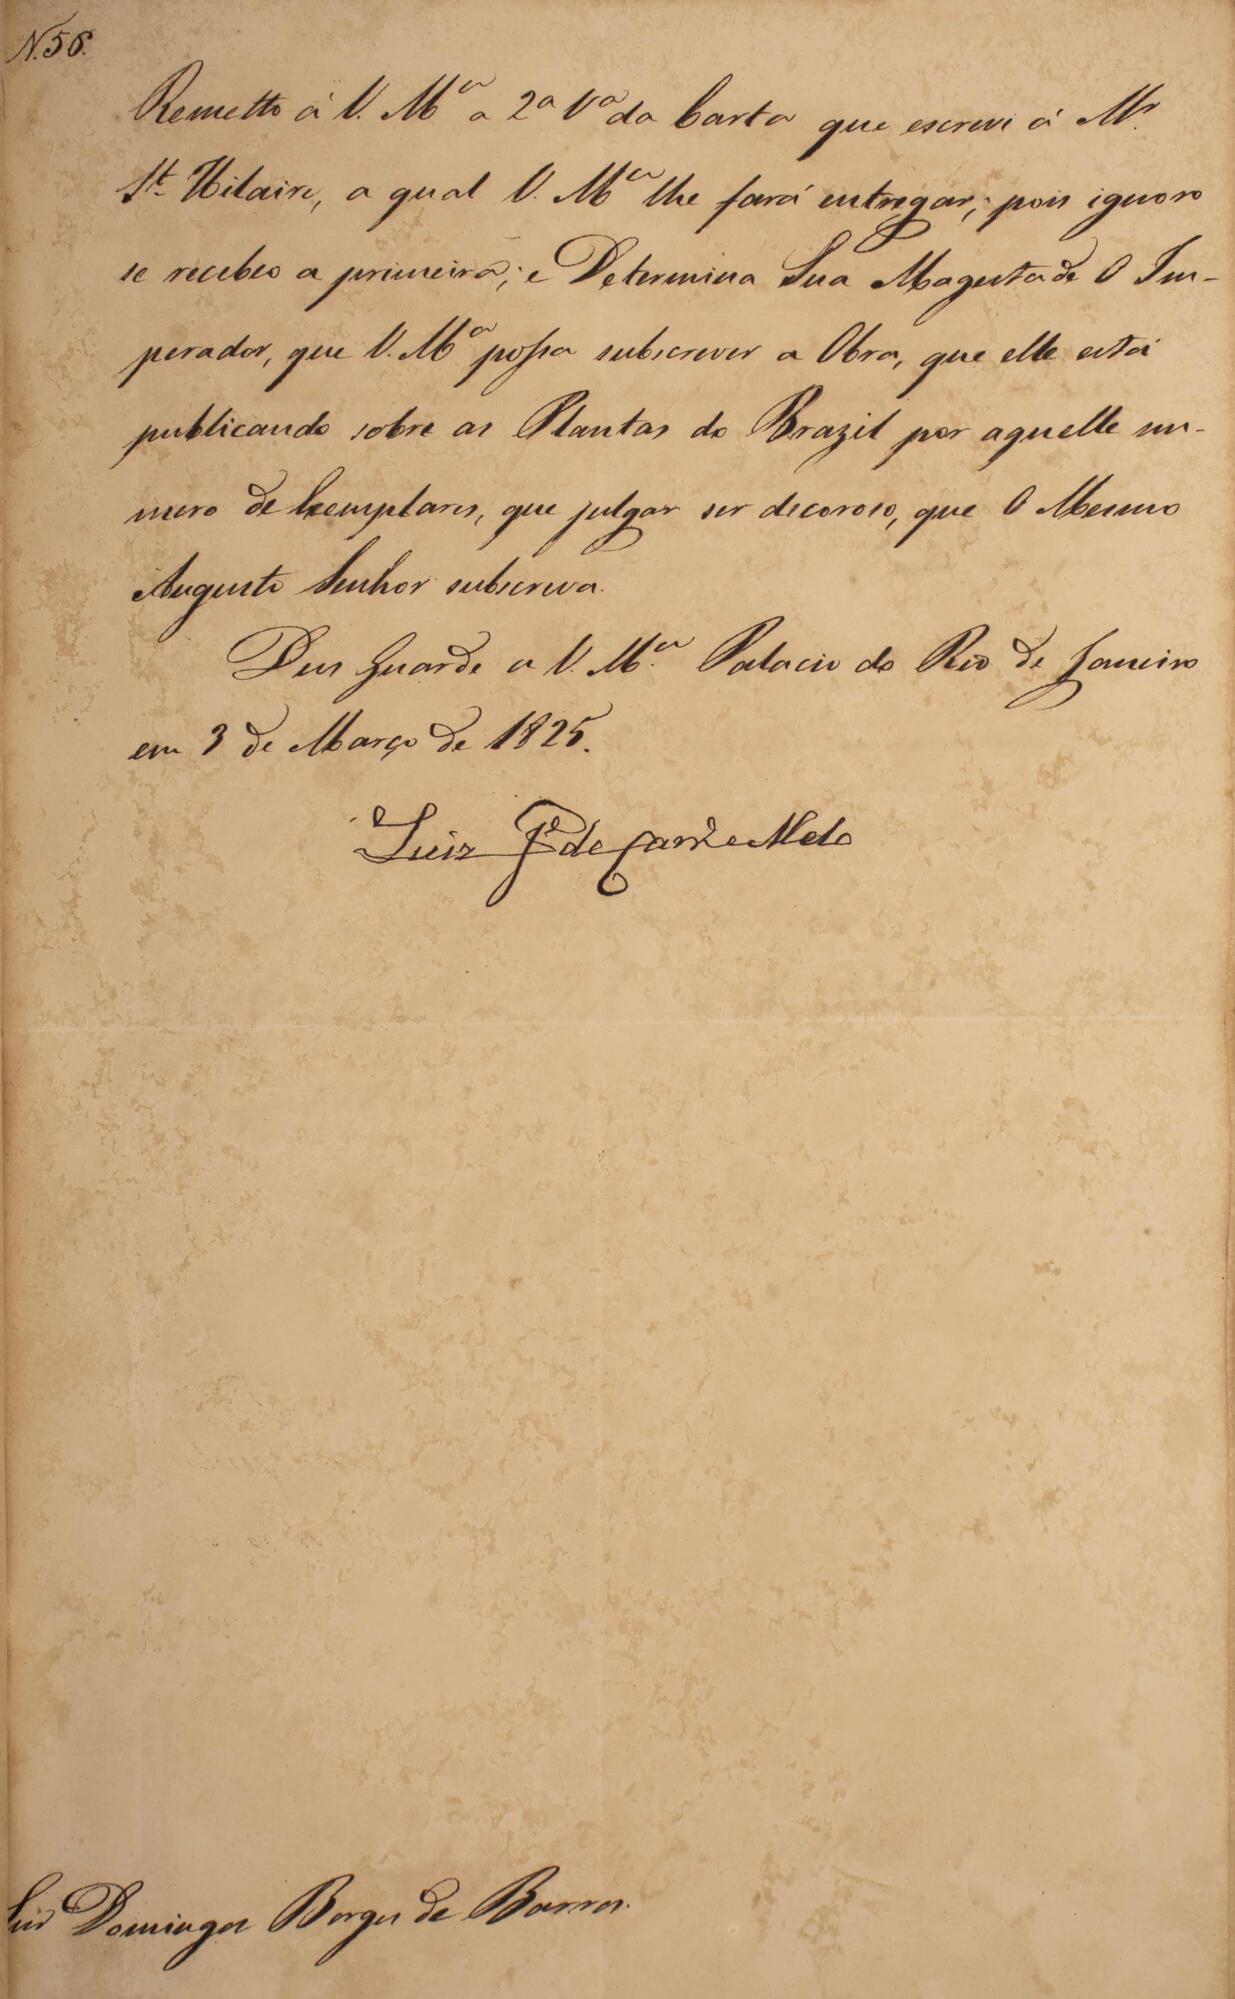 N. 56.
Remetto á V. M.ce a 2ª Vª da Carta que escrevi á Mr.
St. Hilaire, a qual V. M.ce lhe fará entregar; pois ignoro
se recebeo a primeira; e Determina Sua Magestade O Im-
perador, que V. M.ce possa subscrever a Obra, que elle está
publicando sobre as Plantas do Brazil por aquelle nu-
mero de Exemplares, que julgar ser decoroso, que O Mesmo
Augusto Senhor subscreva.
Deus Guarde a V. M.ce Palacio do Rio de Janeiro
em 3 de Março de 1825.
Luiz Jº de Carvº e Melo
Snr Domingos Borges de Barros.